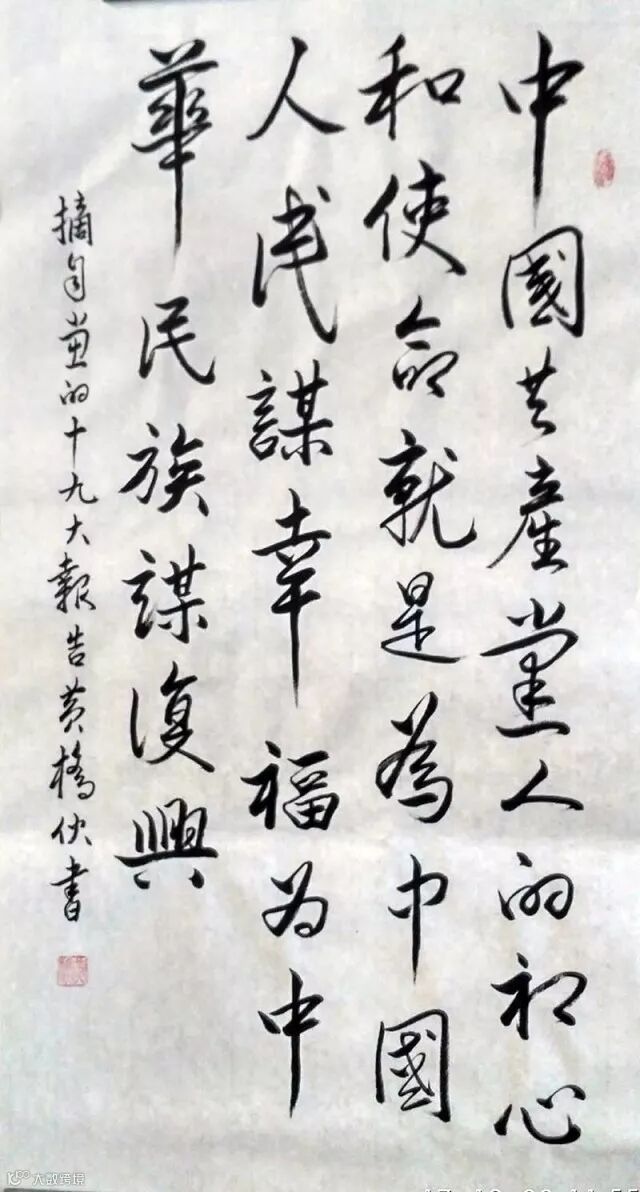 中國共產黨人的初心
和使命就是為中國
人民謀幸福为中
華民族謀復興
摘自党的十九大報告黄橋伙書
大数跨境